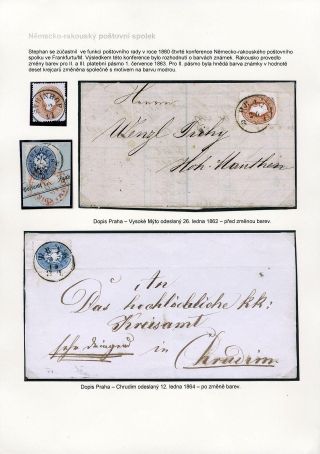 Německo-rakouský poštovní spolek
Stephan se zúčastnil ve funkci poštovního rady v roce 1860 čtvrté konference Německo-rakouského poštovního
spolku ve Frankfurtu/M. Výsledkem této konference bylo rozhodnutí o barvách známek. Rakousko provedlo
změny barev pro II. a III. platební pásmo 1. července 1863. Pro II. pásmo byla hnědá barva známky v hodnotě
deset krejcarů změněna společně s motivem na barvu modrou.
Wenzl Tichy
Hoh. Mauthen
Dopis Praha – Vysoké Mýto odeslaný 26. ledna 1862 – před změnou barev.
An
Das hochlöbliche kk:
Kreisamt
sehr dringend in Chrudim
Dopis Praha – Chrudim odeslaný 12. ledna 1864 – po změně barev.